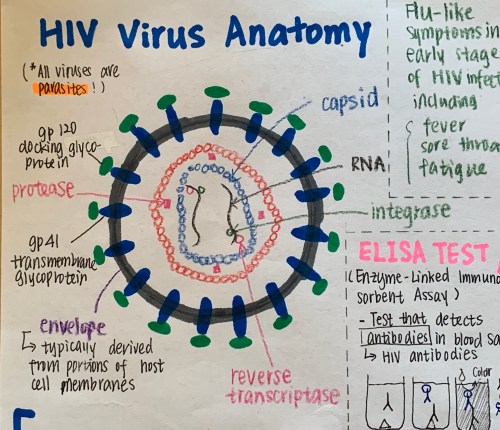 HIV Virus Anatomy
(*All viruses are
parasites!)
gp 120
docking glyco-
protein
protease
gp41
transmembrane
glycoprotein
envelope
↳ typically derived
from portions of host
cell membranes
capsid
RNA
integrase
reverse
transcriptase
Flu-like
symptoms in
early stage
of HIV infect
including
fever
sore throa
fatigue
ELISA TEST
(Enzyme-Linked Immuno
sorbent Assay)
- Test that detects
antibodies in blood sa
↳ HIV antibodies
Color